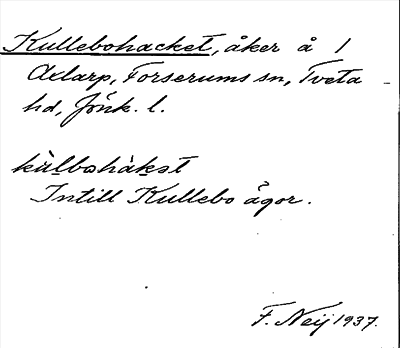 Kullebohacket, åker å 1
Axlarp, Forserums sn, Tveta
hd, Jönk. l.
kùlbohàkət
Intill Kullebo ågor.
F. Neij 1937.